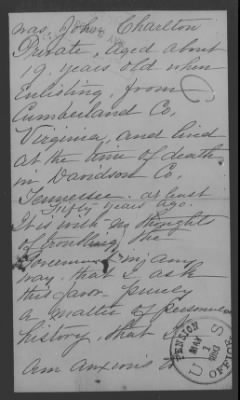 was. John Charlton
Private, aged about
19 years old when
Enlisting, from
Cumberland Co,
Virginia, and lived
at the time of death
in Davidson Co,
Tennessee. at least
Fifty years ago.
It is with no thought
of troubling the
in any
way. that I ask
this favor purely
a matter of Personal
history, that I
am anxious
PENSION OFFICE
MAY
U S